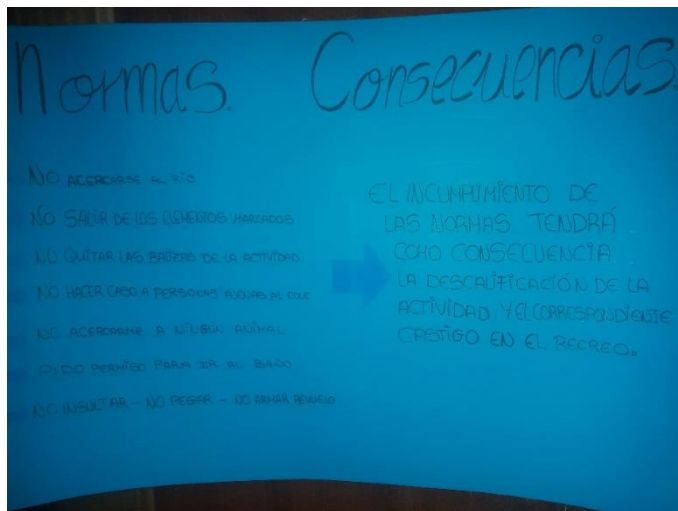 Normas.
NO ACERCARSE AL RIO
NO SALIR DE LOS ELEMENTOS MARCADOS
NO QUITAR LAS BALIZAS DE LA ACTIVIDAD
NO HACER CASO A PERSONAS AJENAS AL COLE
NO ACERCARME A NINGÚN ANIMAL
PIDO PERMISO PARA IR AL BAÑO
NO INSULTAR - NO PEGAR - NO ARMAR REVUELO
Consecuencias.
EL INCUMPLIMIENTO DE
LAS NORMAS TENDRÁ
COMO CONSECUENCIA
LA DESCALIFICACIÓN DE LA
ACTIVIDAD Y EL CORRESPONDIENTE
CASTIGO EN EL RECREO.